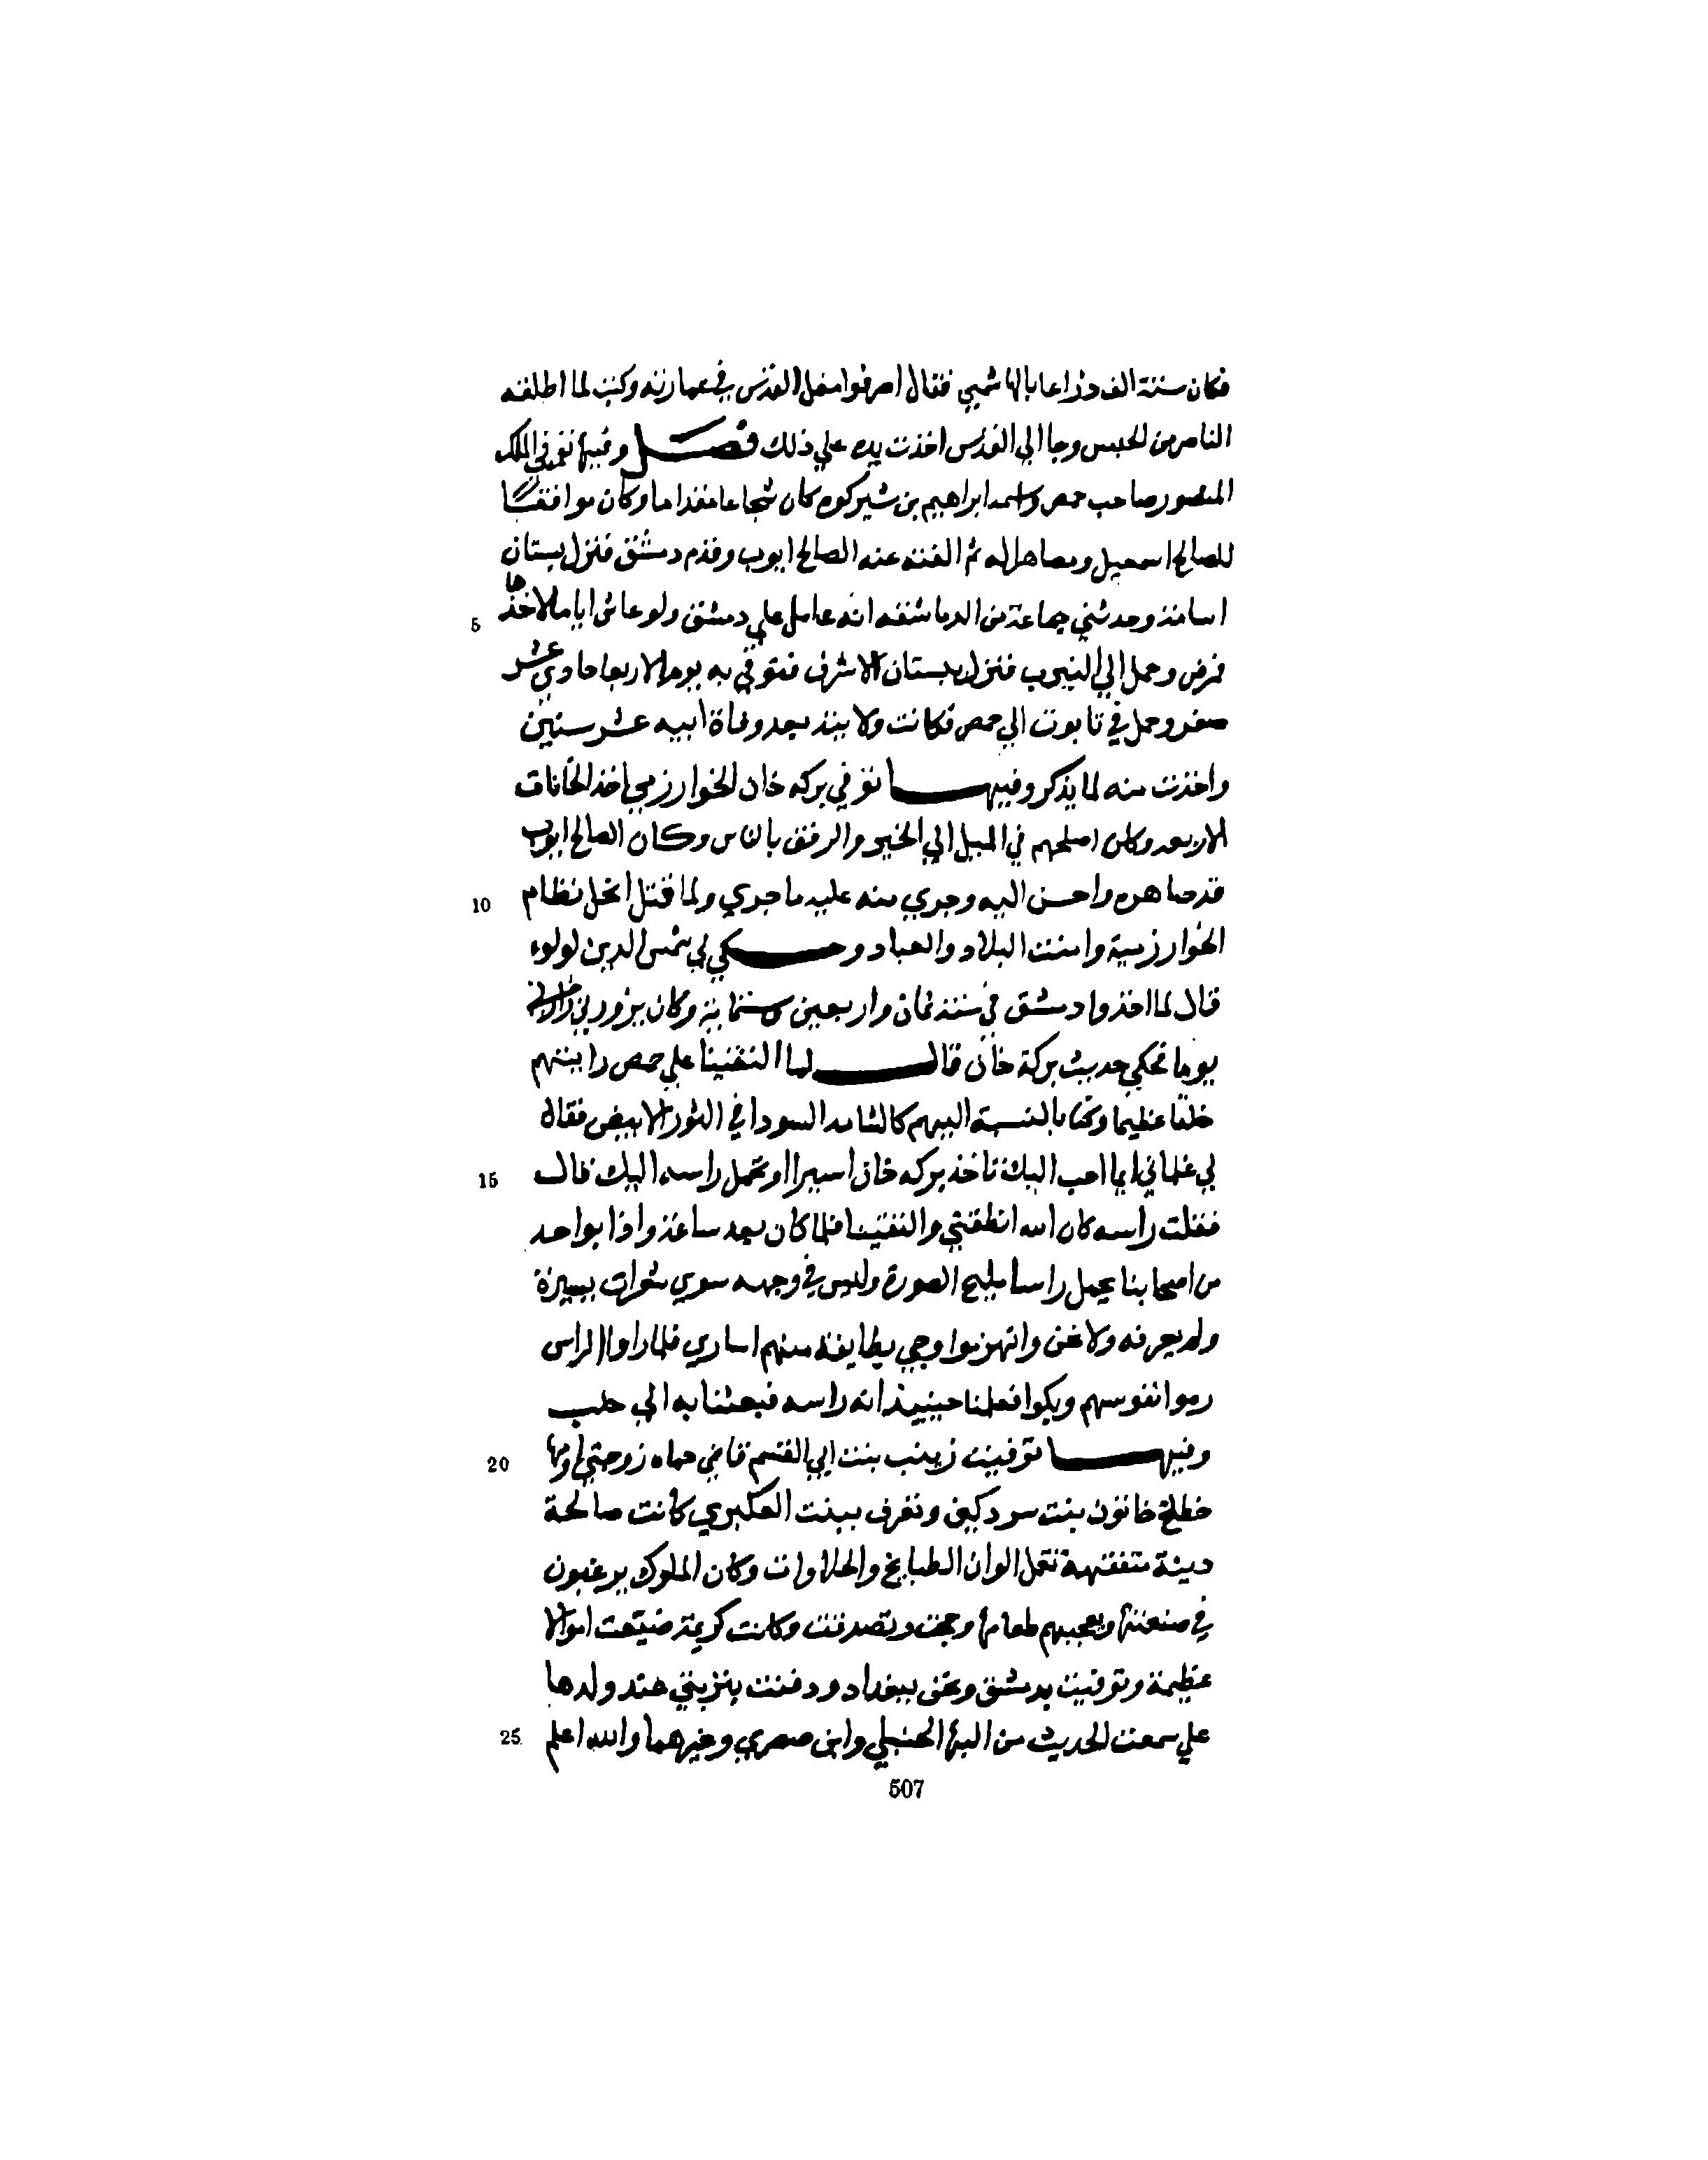 فكان ستة الف ذراعا بالهاشمي فقال اصرفوا مغل القدس في عمارته وكنت لما اطلقه
الناصر من الحبس وجا الي القدس اخذت يده علي ذلك فصل وفيها توفي الملك
المنصور صاحب حمص واسمه ابراهيم بن شيركوه كان شجاعا مقداما وكان موافقا
للصالح اسمعيل ومصاهرا له ثم الفته عنه الصالح ايوب وقدم دمشق فنزل بستان
5 اسامة وحدثني جماعة من الدماشقه انه عامل علي دمشق ولو عاش اياما لاخذها
فمرض وحمل الي النيرب فنزل بستان الاشرف فتوفي به يوم الاربعا حادي عشر
صفر وحمل في تابوت الي حمص فكانت ولايته بعد وفاة ابيه عشر سنين
واخذت منه لما يذكر وفيها توفي بركه خان الخوارزمي احد الخانات
الاربعه وكان اصلحهم في الميل الي الخير والرفق بالناس وكان الصالح ايوب
10 قد صاهره واحسن اليه وجري منه عليه ما جري ولما قتل انحل نظام
الخوارزمية وامنت البلاد والعباد وحكي لي شمس الدين لولوه
قال لما اخذوا دمشق في سنة ثمان واربعين وستماية وكان يزورني
يوما نحكي حديث بركة خان قال لما التقينا علي حمص رايتهم
خلقا عظيما وكنا بالنسبة اليهم كالشامه السودا في الثور الابيض فقال
15 لي غلماني ايما احب اليك ناخذ بركه خان اسيرا او نحمل راسه اليك قال
فقلت راسه كان الله انطقني والتقينا فلما كان بعد ساعة واذا بواحد
من اصحابنا يحمل راسا مليح الصورة وليس في وجهه سوي شعرات يسيرة
ولم يعرفه ولا نحن وانهزموا وجي بطايفة منهم اساري فلما راوا الراس
رموا نفوسهم وبكوا فعلمنا حينيذ انه راسه فبعثنا به الي حلب
20 وفيها توفيت زينب بنت ابي القسم قاضي حماه زوجتي وامها
خطلخ خاتون بنت سودكين وتعرف ببنت العكبري كانت صالحة
دينة متفقهة تعمل الوان الطبايخ والحلاوات وكان الملوك يرغبون
في صنعتها ويعجبهم طعامها وحجت وتصدقت وكانت كريمة ضيعت اموالا
عظيمة وتوفيت بدمشق ونحن ببغداد ودفنت بتربتي عند ولدها
25 علي سمعت الحديث من البها الحنبلي وابن صصري وغيرهما والله اعلم
507